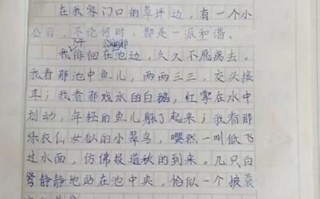 在我家门口的草坪边,有一个小
公园,不论何时,都是一派和谐。
我徘徊在池边,久久不愿离去。
我看那池中鱼儿,两两三三,交头接
耳;我看那戏水的白鹅,红掌在水中
划动,年轻的鱼儿躲了起来;我看那
乐衣仙女似的小翠鸟,嘤然一叫低飞
过水面,仿佛报道秋的到来。几只白
鹭静静地站在池中央,恰似一个披